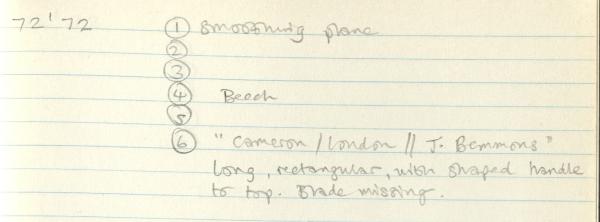 72'72 ① Smoothing plane
②
③
④ Beech
⑤
⑥ "Cameron / London // J. Bemmons"
Long, rectangular, with shaped handle
to top. Blade missing.